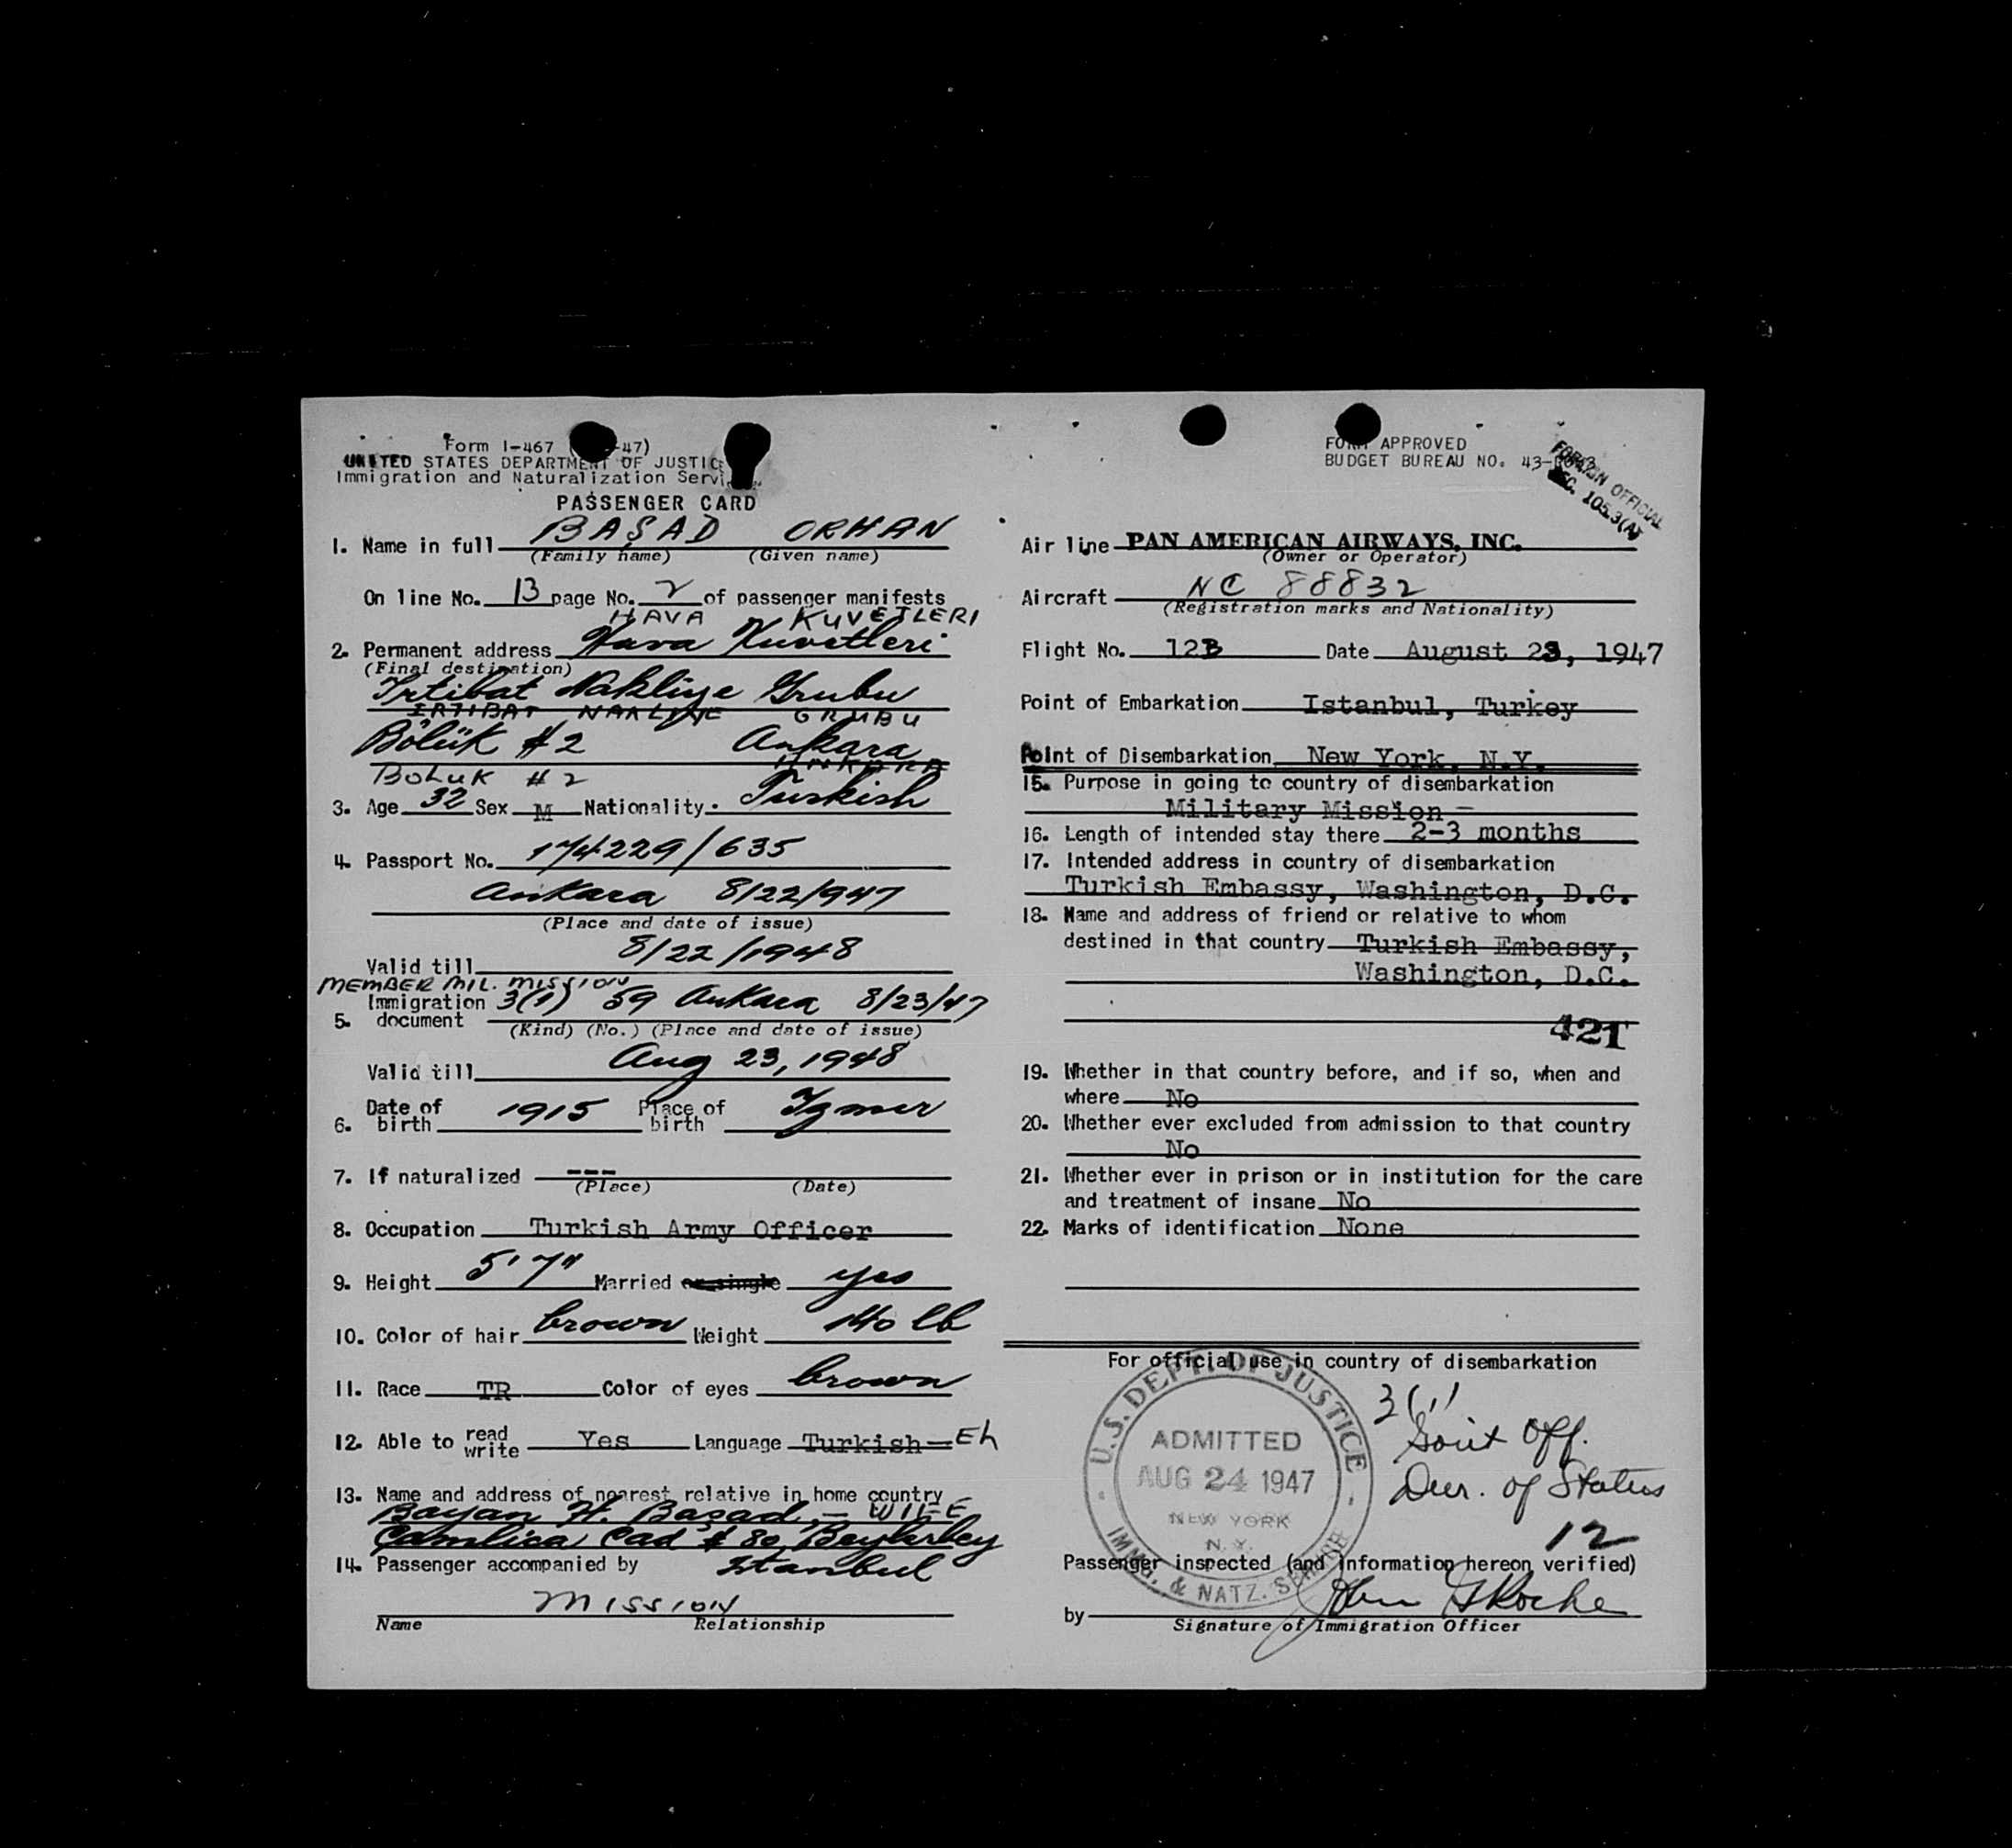 Form I-467 -47)
UNITED STATES DEPARTMENT OF JUSTIC
Immigration and Naturalization Servi
PASSENGER CARD
1. Name in full BAŞAD ORHAN
(Family name) (Given name)
On line No. 13 page No. 2 of passenger manifests
HAVA KUVETLERI
2. Permanent address Hava Kuvetleri
(Final destination)
Irtibat Nakliye Grubu
IRTIBAT NAKLIYE GRUBU
Bölük #2 Ankara
BOLUK #2 ANKARA
3. Age 32 Sex M Nationality. Turkish
4. Passport No. 174229/635
Ankara 8/22/947
(Place and date of issue)
Valid till 8/22/1948
MEMBER MIL. MISSION
5. Immigration document 3(1) 59 Ankara 8/23/47
(Kind) (No.) (Place and date of issue)
Valid till Aug 23, 1948
6. Date of birth 1915 Place of birth Izmir
7. If naturalized ---
(Place) (Date)
8. Occupation Turkish Army Officer
9. Height 5'7" Married or single yes
10. Color of hair brown Weight 140 lb
11. Race TR Color of eyes brown
12. Able to read write Yes Language Turkish-Eh
13. Name and address of nearest relative in home country
Bayan H. Başad, - WIFE
Camlica Cad # 80 Beylerbey
14. Passenger accompanied by Istanbul
MISSION
Name Relationship
FORM APPROVED
BUDGET BUREAU NO. 43-
FOREIGN OFFICIAL
SEC. 105.3(A)
Air line PAN AMERICAN AIRWAYS, INC.
(Owner or Operator)
Aircraft NC 88832
(Registration marks and Nationality)
Flight No. 123 Date August 23, 1947
Point of Embarkation Istanbul, Turkey
Point of Disembarkation New York, N.Y.
15. Purpose in going to country of disembarkation
Military Mission -
16. Length of intended stay there 2-3 months
17. Intended address in country of disembarkation
Turkish Embassy, Washington, D.C.
18. Name and address of friend or relative to whom
destined in that country Turkish Embassy,
Washington, D.C.
421
19. Whether in that country before, and if so, when and
where No
20. Whether ever excluded from admission to that country
No
21. Whether ever in prison or in institution for the care
and treatment of insane No
22. Marks of identification None
For official use in country of disembarkation
U.S. DEPT. OF JUSTICE
ADMITTED
AUG 24 1947
NEW YORK
N.Y.
IMMG. & NATZ. SERVICE
3(1)
Govt Off.
Dur. of Status
12
Passenger inspected (and information hereon verified)
by
Signature of Immigration Officer